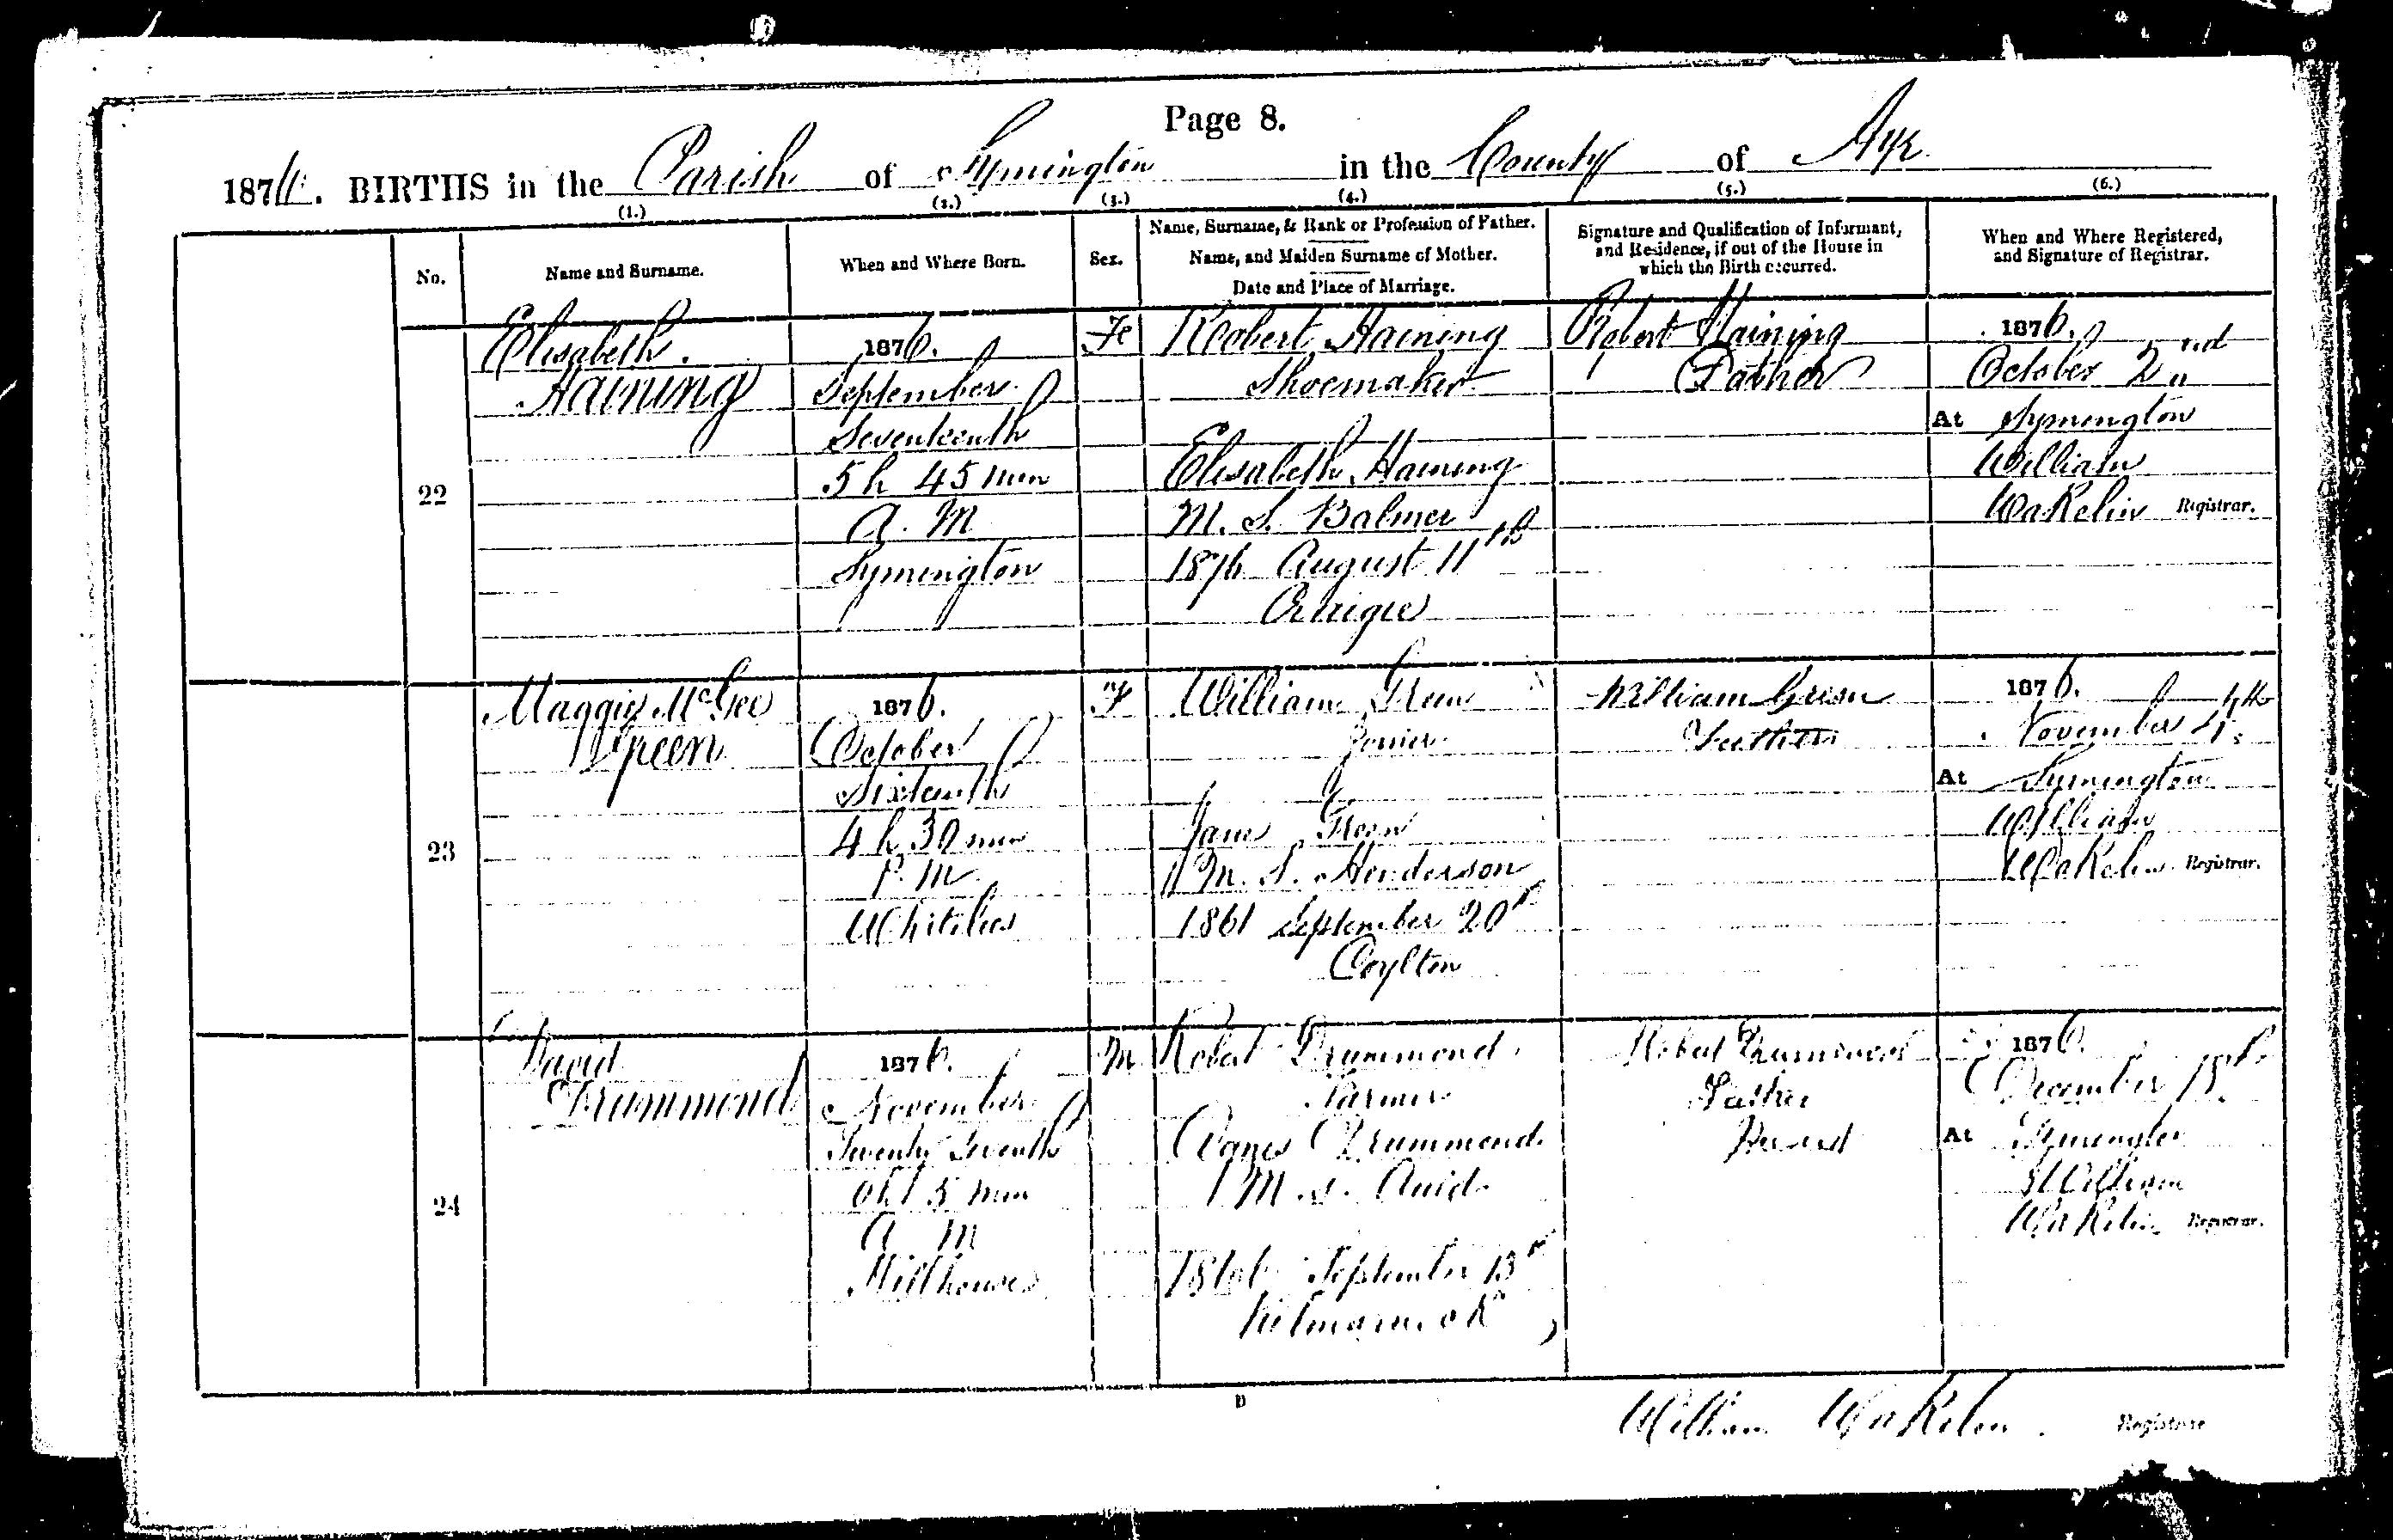 Page 8.
1876. BIRTHS in the Parish of Symington in the County of Ayr
(1.) (2.) (3.) (4.) (5.) (6.)
No.
Name and Surname.
When and Where Born.
Sex.
Name, Surname, & Rank or Profession of Father.
Name, and Maiden Surname of Mother.
Date and Place of Marriage.
Signature and Qualification of Informant,
and Residence, if out of the House in
which the Birth occurred.
When and Where Registered,
and Signature of Registrar.
22
Elisabeth
Haining
1876.
September
Seventeenth
5 h 45 min
A. M
Symington
Fe
Robert Haining
Shoemaker
Elisabeth Haining
M. S. Balmer
1876 August 11th
Craigie
Robert Haining
Father
1876.
October 2nd
At Symington
William
Wakelin Registrar.
23
Maggie McGee
Green
1876.
October
Sixteenth
4 h 30 min
P. M
Whitelees
F
William Green
Joiner
Jane Green
M. S. Henderson
1861 September 20th
Coylton
William Green
Father
1876.
November 4th
At Symington
William
Wakelin Registrar.
24
David
Drummond
1876.
November
Twenty Seventh
0 h 15 min
A M
Millhouse
M
Robert Drummond
Farmer
Agnes Drummond
M. S. Auld
September 13th
Kilmarnock
Robert Drummond
Father
Present
1876.
December 15th
At Symington
William
Wakelin Registrar.
D
William Wakelin. Registrar